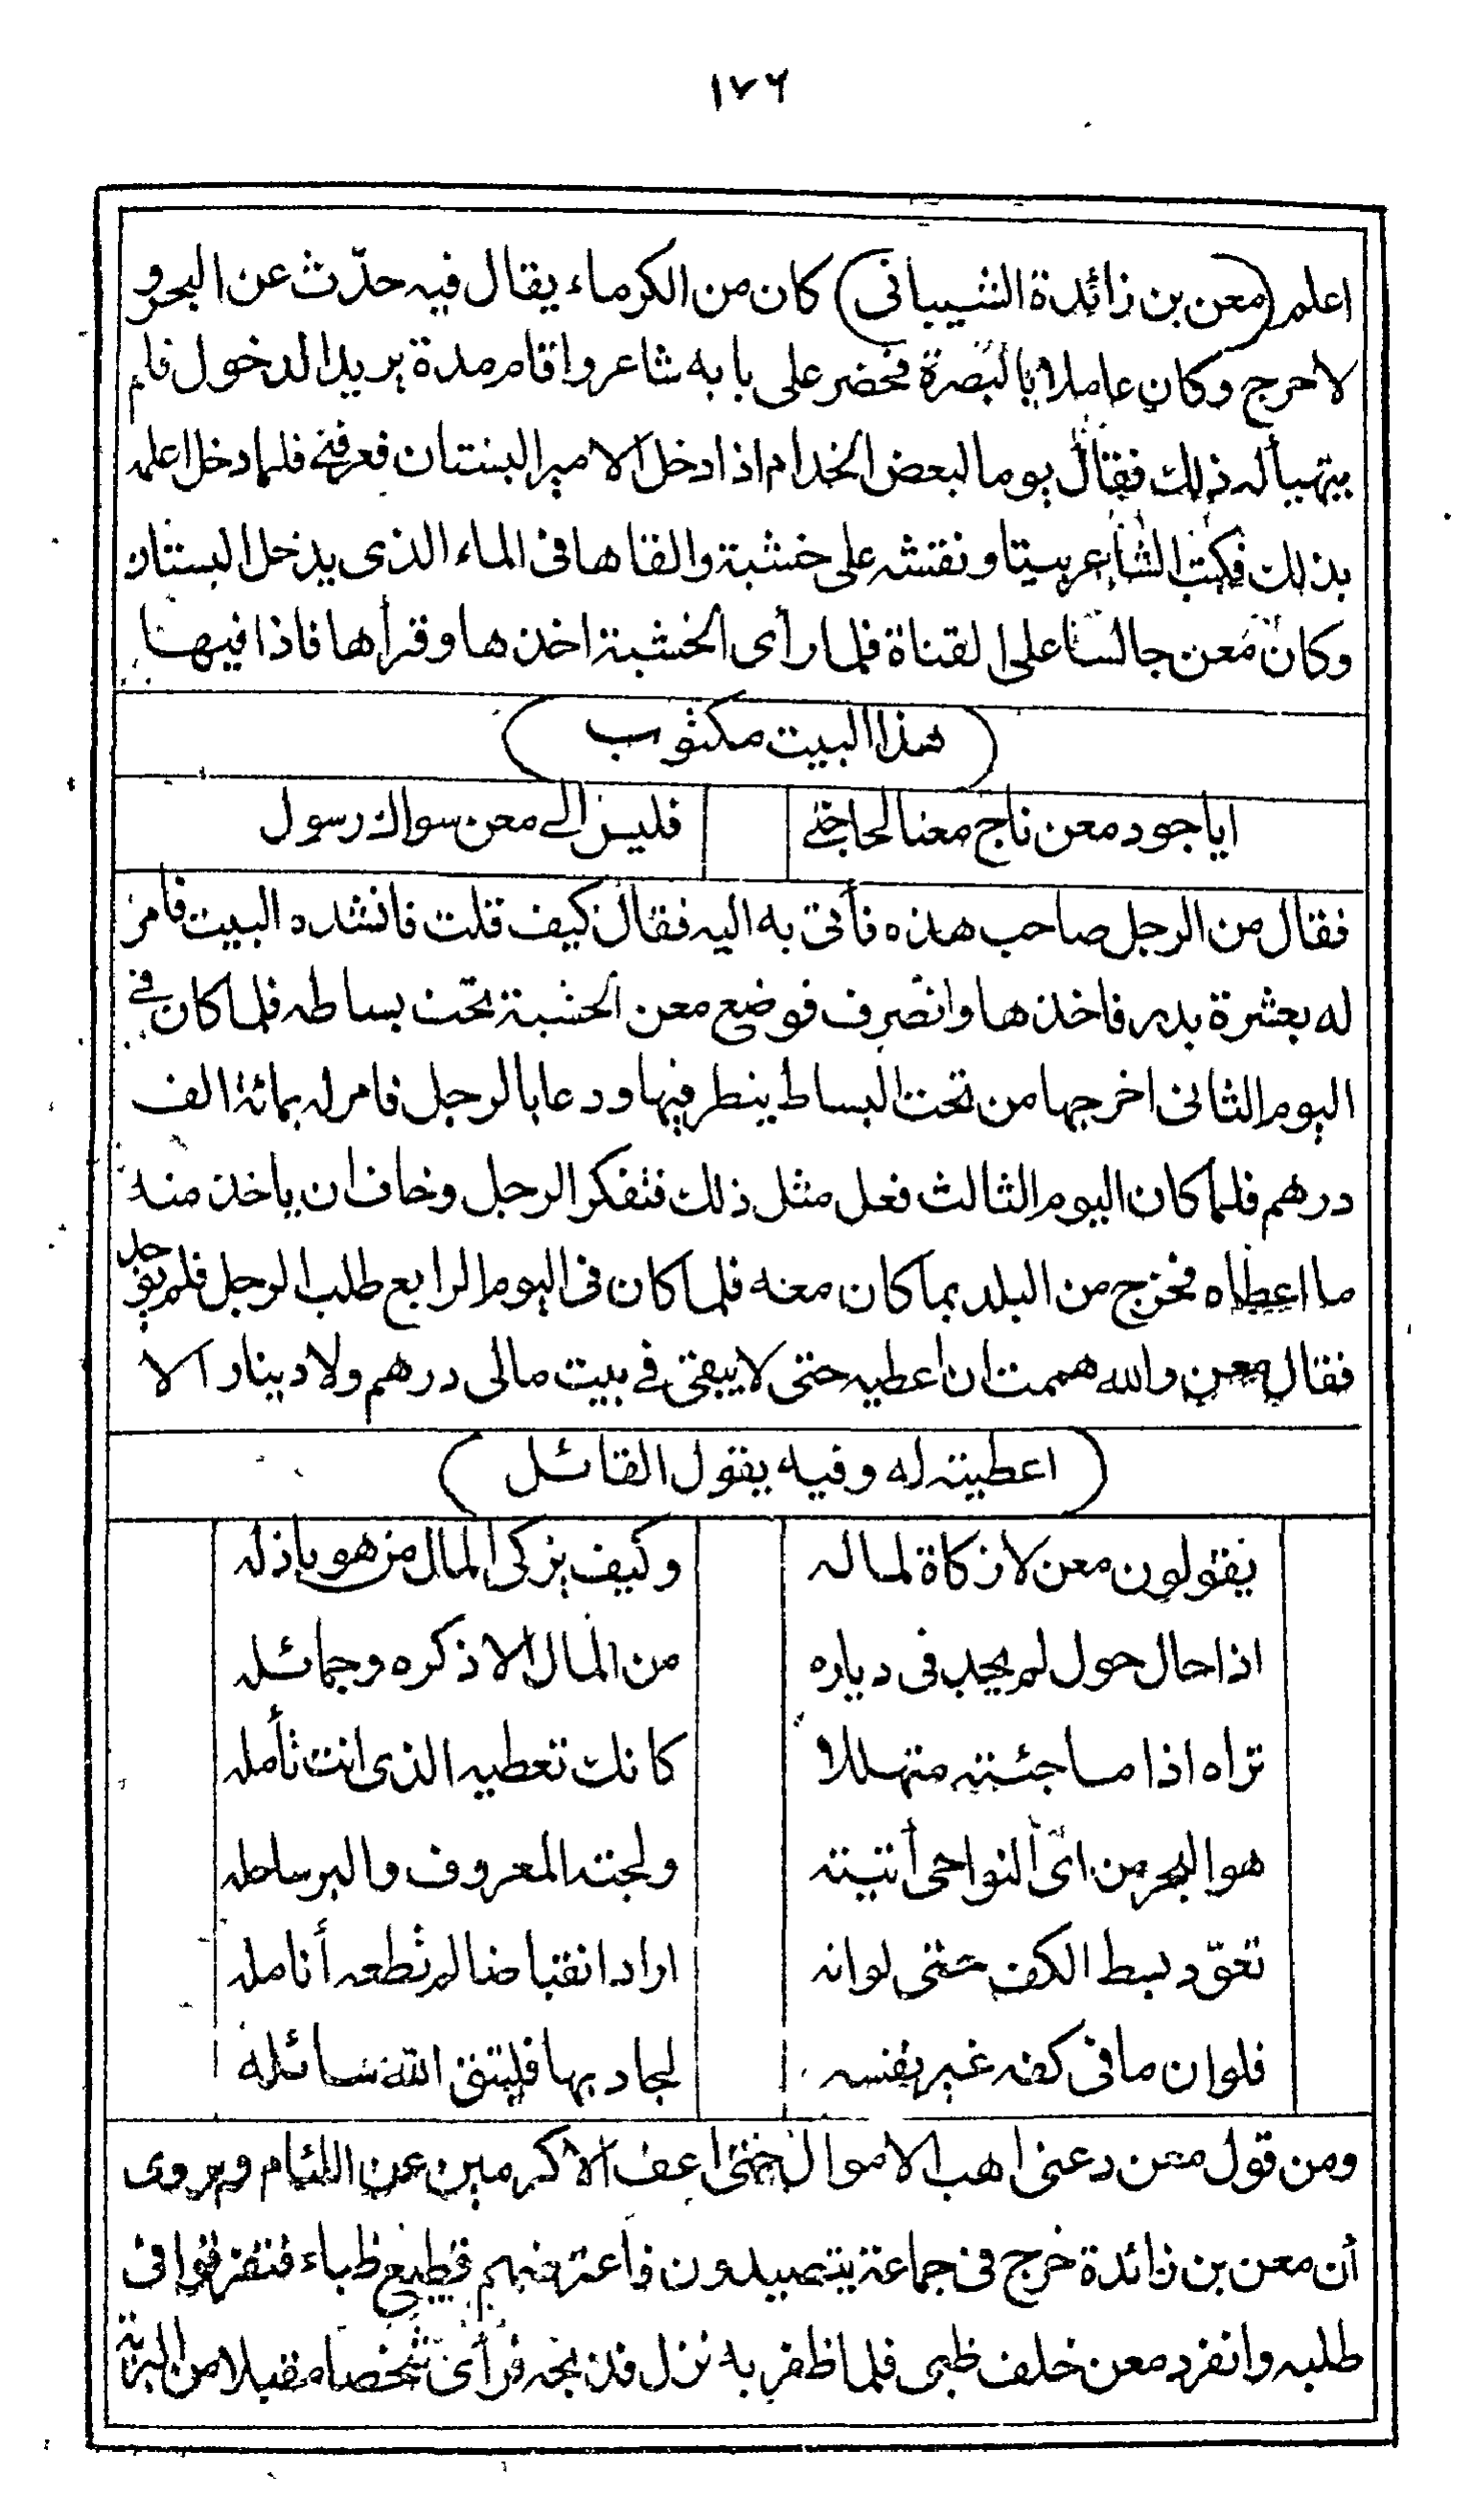 ١٧٦
اعلم (معن بن زائدة الشيبانى) كان من الكرماء يقال فيه حدّث عن البحر و
لا حرج وكان عاملا بالبصرة فحضر على بابه شاعر واقام مدة يريد الدخول فلم
يتهيأ له ذلك فقال يوما لبعض الخدام اذا دخل الامير البستان فعرفنى فلما دخل اعلمه
بذلك فكتب الشاعر بيتا ونقشه على خشبة والقاها فى الماء الذى يدخل البستان
وكان معن جالسا على القناة فلما رأى الخشبة اخذها وقرأها فاذا فيها
(هذا البيت مكتوب)
ايا جود معن ناج معنا لحاجتى فليس الى معن سواك رسول
فقال من الرجل صاحب هذه فأتى به اليه فقال كيف قلت فانشده البيت فامر
له بعشرة بدر فاخذها وانصرف فوضع معن الخشبة تحت بساطه فلما كان فى
اليوم الثانى اخرجها من تحت البساط ينظر فيها ودعا بالرجل فامر له بمائة الف
درهم فلما كان اليوم الثالث فعل مثل ذلك فتفكر الرجل وخاف ان ياخذ منه
ما اعطاه فخرج من البلد بما كان معه فلما كان فى اليوم الرابع طلب الرجل فلم يوجد
فقال معن والله هممت ان اعطيه حتى لا يبقى فى بيت مالى درهم ولا دينار الا
(اعطيته له وفيه يقول القائل)
يقولون معن لا زكاة لماله وكيف يزكى المال من هو باذله
اذا حال حول لم يجد فى دياره من المال الا ذكره وجمائله
تراه اذا ما جئته متهللا كانك تعطيه الذى انت تأمله
هو البحر من اىّ النواحى أتيته ولجته المعروف والبر ساحله
تعوّد بسط الكف حتى لو انه اراد انقباضا لم تطعه أنامله
فلو ان ما فى كفه غير نفسه لجاد بها فليتق الله سائله
ومن قول معن دعنى اهب الاموال حتى اعف الاكرمين عن اللئام ويروى
أن معن بن زائدة خرج فى جماعة يتصيدون فاعترضهم قطيع ظباء فتفرقوا فى
طلبه وانفرد معن خلف ظبى فلما ظفر به نزل فذبحه فرأى شخصا مقبلا من البرية